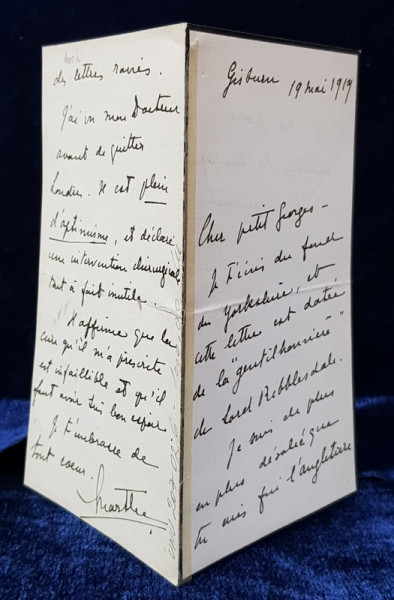 Gisburn 19 mai 1919
Cher petit Georges –
Je t'écris du fond
du Yorkshire, et
cette lettre est datée
de la "gentilhommière"
de Lord Ribblesdale.
Je suis de plus
en plus désolée que
tu aies fui l'Angleterre
des lettres
J'ai vu mon Docteur
avant de quitter
Londres. Il est plein
d'optimisme, et déclare
une intervention chirurgicale
tout à fait inutile.
Il affirme que la
cure qu'il m'a prescrite
est infaillible et qu'il
faut avoir bon espoir.
Je t'embrasse de
tout coeur.
Marthe.